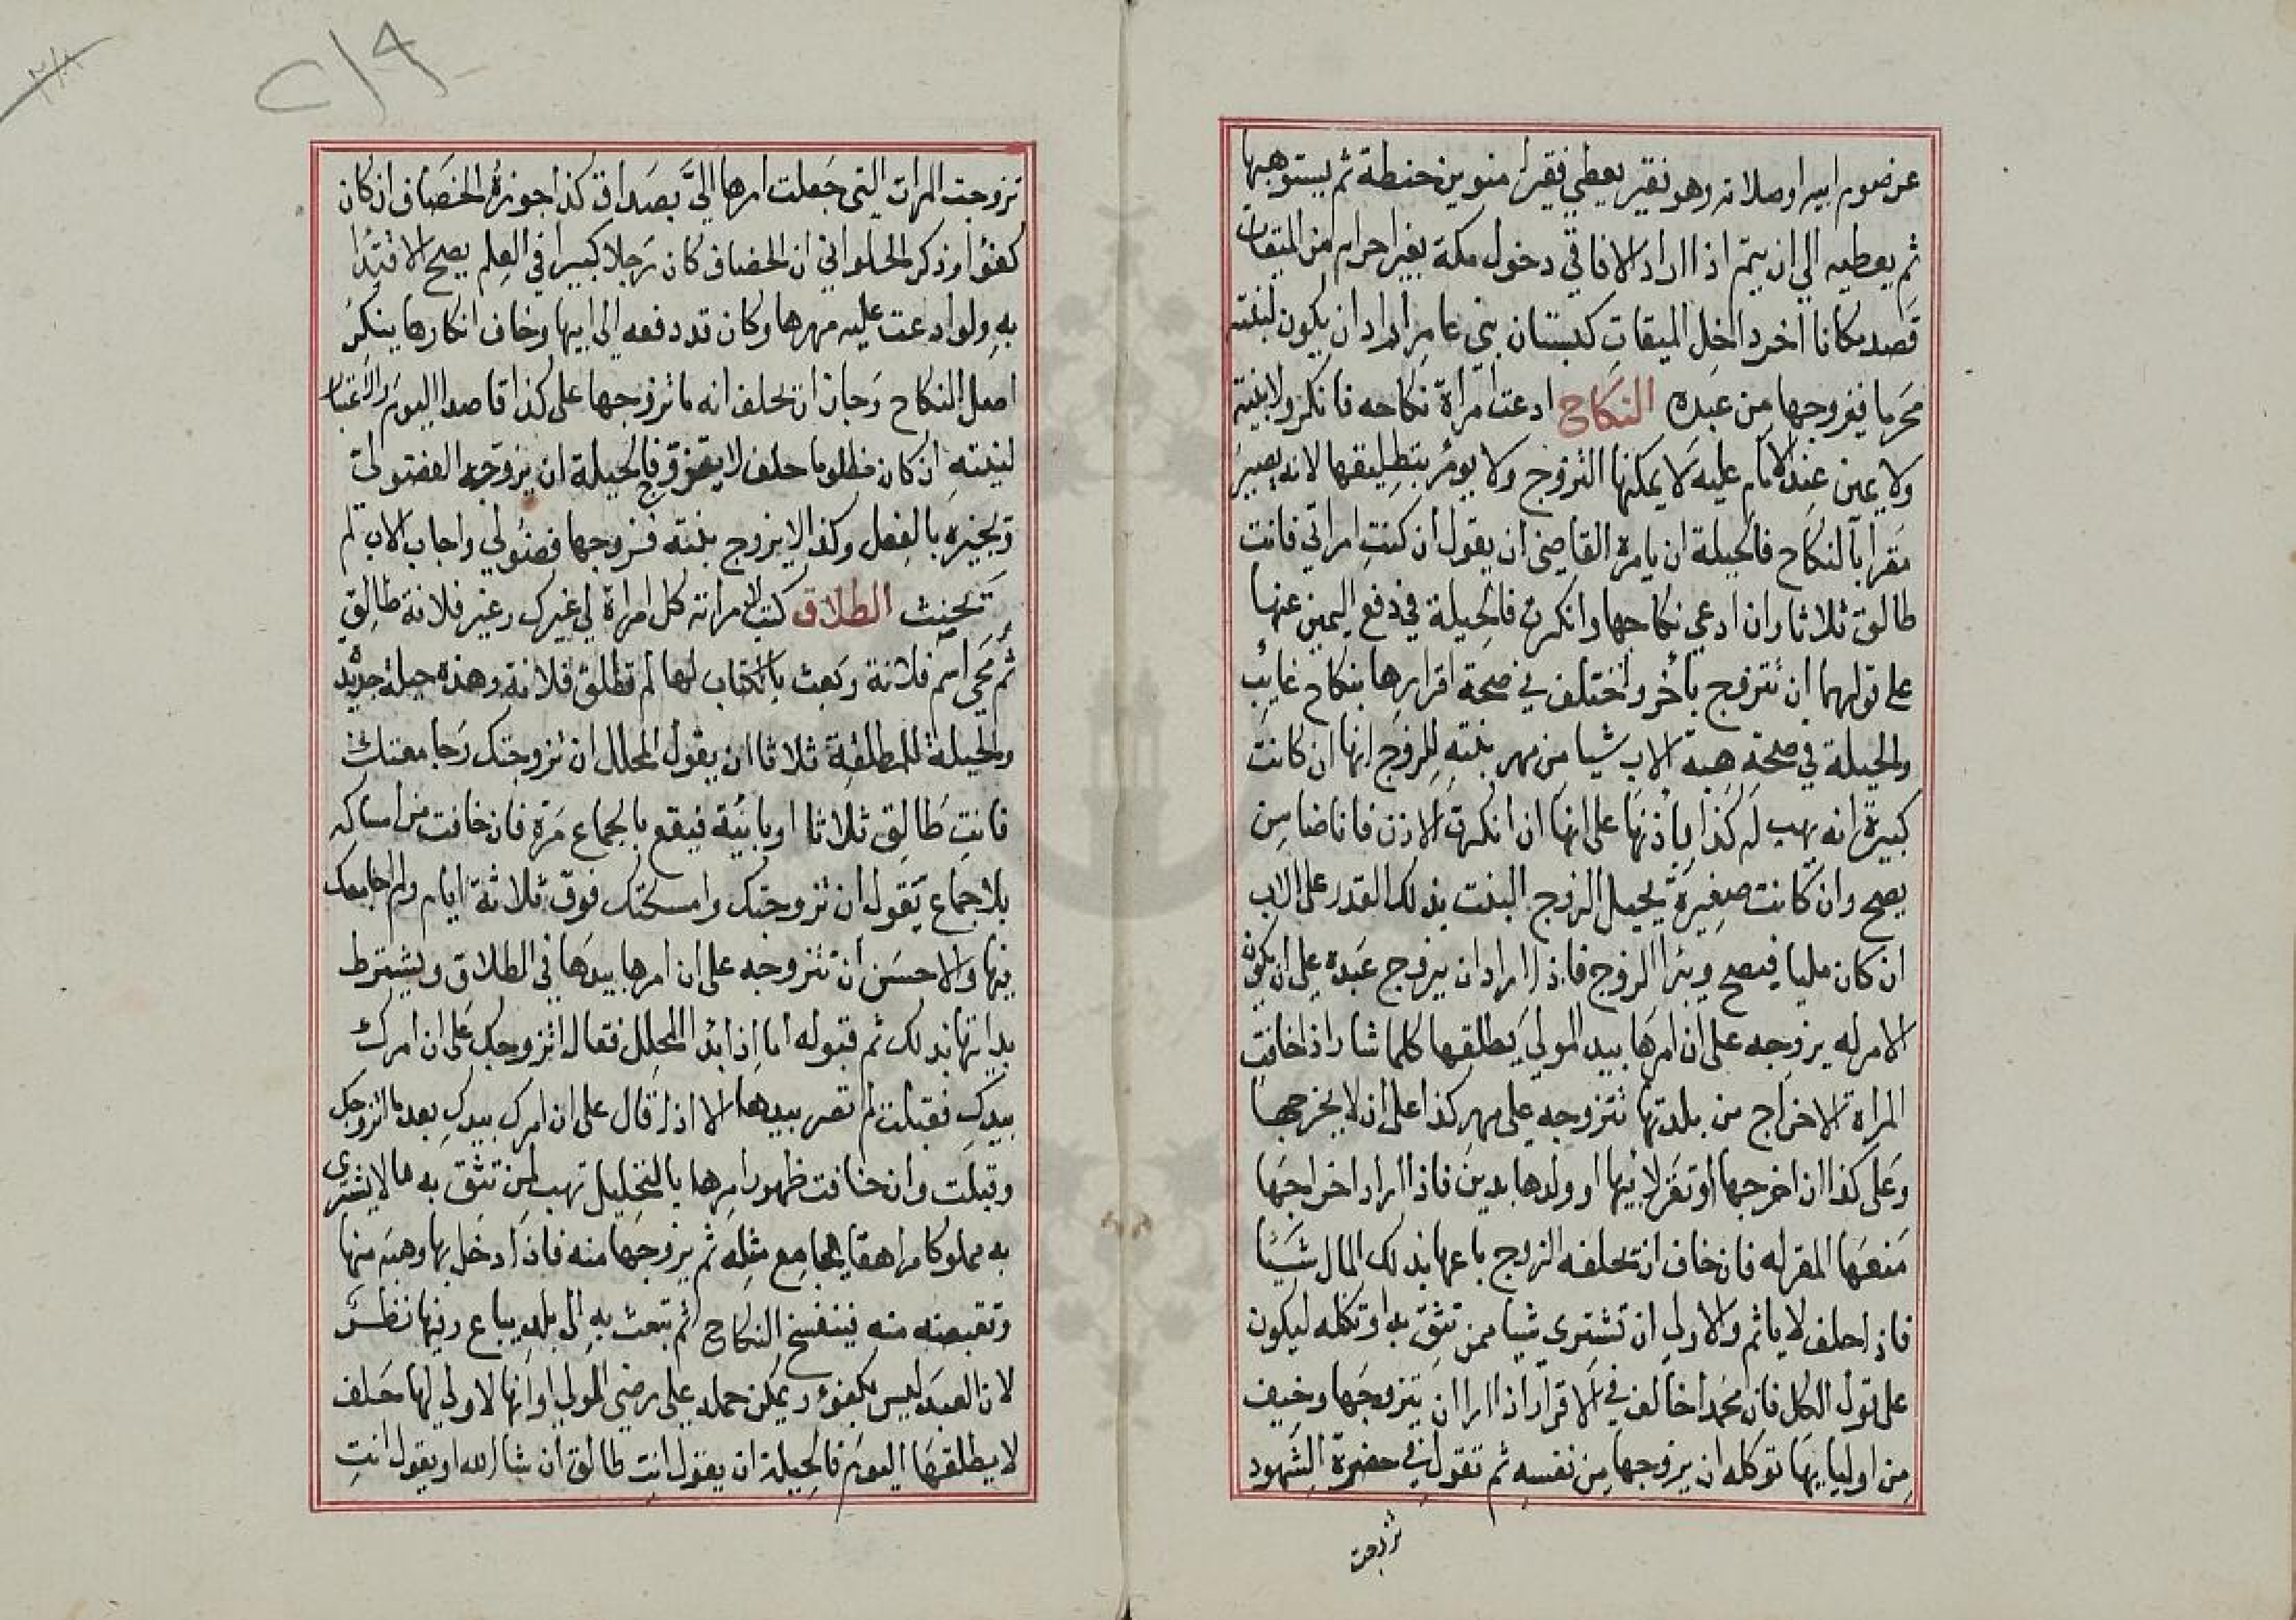 عن صوم ابيه او صلاته وهو نقير يعطي فقيرا منوين حنطة ثم يستوهبها
ثم يعطيه الي ان يتم اذا اراد الافاقي دخول مكة بغير احرام من الميقات
قصد مكانا اخر داخل الميقات كبستان بني عامر اراد ان يكون لبنته
محرما يزوجها من عبده النكاح ادعت امراة نكاحه فانكر ولا بينة
ولا يمين عند الامام عليه لا يمكنها التزوج ولا يومر بتطليقها لانه يصير
مقرا بالنكاح فالحيلة ان يامره القاضي ان يقول ان كنت امراتي فانت
طالق ثلاثا وان ادعي نكاحها وانكرت فالحيلة في دفع اليمين عنها
على قولهما ان تتزوج بأخر واختلف في صحة اقرارها بنكاح غايب
والحيلة في صحة هبة الاب شيا من مهر بنته للزوج انها ان كانت
كبيرة انه يهب له كذا باذنها على انها ان انكرت الاذن فاناضامن
يصح وان كانت صغيرة يحيل الزوج البنت بذلك القدر على الاب
ان كان مليا فيصح ويبرا الزوج فاذا اراد ان يزوج عبده على ان يكون
الامر له يزوجه على ان امرها بيد المولي يطلقها كلما شا واذا خافت
المراة الاخراج من بلدتها تتزوجه على مهر كذا على ان لا يخرجها
وعلى كذا ان اخرجها او تقر لابيها او ولدها بدين فاذا اراد اخراجها
منعها المقر له فان خاف ان تحلفه الزوج باعها بذلك المال شيئا
فاذا حلف لا ياثم والاولي ان تشتري شيا ممن تثق به او تكله ليكون
على قول الكل فان محمدا خالف في الاقرار اذا ارا ان يتزوجها وخيف
من اوليايها توكله ان يزوجها من نفسه ثم تقول في حضرة الشهود
تزوجت
٢١٩
٢١٨
تزوجت المرات التي جعلت امرها اليَّ بصداق كذا جوزه الخصاف ان كان
كفؤا وذكر الحلواني ان الخصاف كان رجلا كبيرا في العلم يصح الاقتدا
به ولو ادعت عليه مهرها وكان قد دفعه الي ابيها وخاف انكارها ينكر
اصل النكاح وجاز ان تحلف انه ما تزوجها على كذا قاصدا اليوم والاعتبار
لنيته ان كان مظلوما حلف لا يتزوج فالحيلة ان يزوجه الفضولي
ويجيزه بالفعل وكذا لا يزوج بنته فزوجها فضولي واجاب الاب لم
يحنث الطلاق كتب لامراته كل امراة لي غيرك وغير فلانة طالق
ثم محي اسم فلانة وبعث بالكتاب لها لم تطلق فلانة وهذه حيلة جيدة
والحيلة للمطلقة ثلاثا ان يقول المحلل ان تزوجتك وجامعتك
فانت طالق ثلاثا او باينة فيقع بالجماع مرة فان خافت من امساكه
بلا جماع يقول ان تزوجتك وامسكتك فوق ثلاثة ايام ولم اجامعك
فيها والاحسن ان تتزوجه على ان امرها بيدها في الطلاق ويشترط
بداتها بذلك ثم قبوله اما اذا بدا المحلل فقال اتزوجك على ان امرك
بيدك فقبلت لم تصر بيدها الا اذا قال على ان امرك بيدك بعد ما اتزوجك
وقبلت وان خافت ظهور امرها بالتحليل تهب لمن تثق به مالا يشتري
به مملوكا مراهقا يجامع مثله ثم يزوجها منه فاذا دخل بها وهبه منها
وتقبضه منه فينفسخ النكاح ثم تبعث به الى بلد يباع وفيها نظر
لان العبد ليس بكفؤ ويمكن حمله على رضي المولي او انها لا ولي لها حلف
لا يطلقها اليوم فالحيلة ان يقول انت طالق ان شا الله او يقول انت